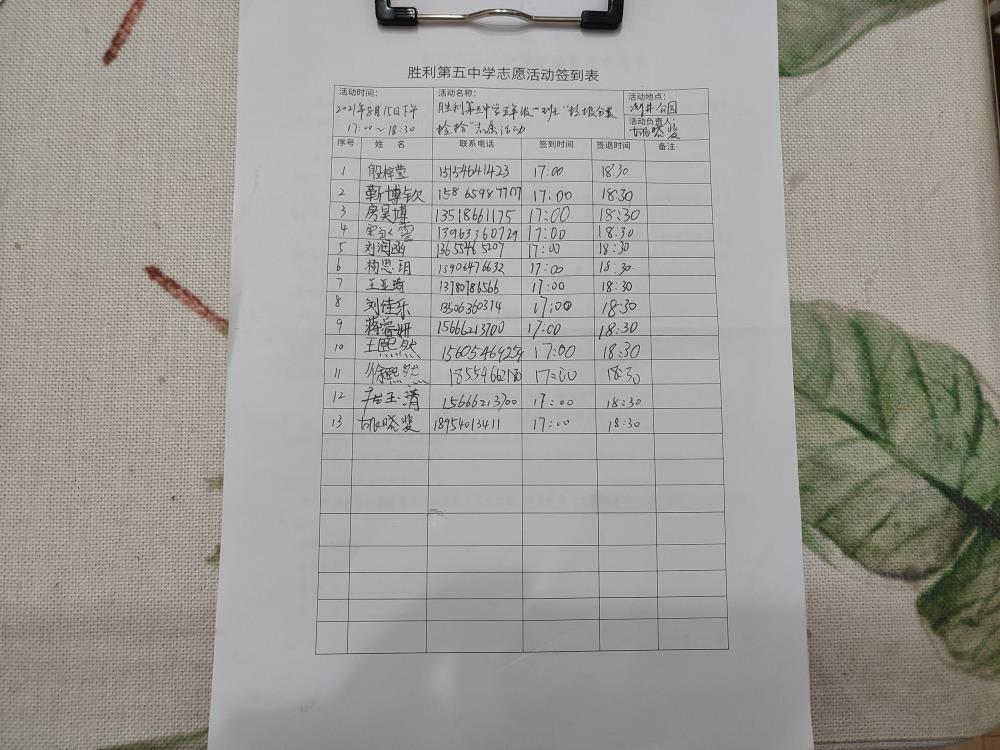 胜利第五中学志愿活动签到表
活动时间: 活动名称: 活动地点:
2021年8月15日下午 胜利第五中学五年级一班"垃圾分类 公园
17:00~18:30 捡拾"志愿活动 活动负责人:
胡晓斐
序号 姓 名 联系电话 签到时间 签退时间 备注
1 殷梓萱 15154641423 17:00 18:30
2 靳博钦 15865987707 17:00 18:30
3 房昊博 13518661175 17:00 18:30
4 13963360729 17:00 18:30
5 刘润涵 13655465207 17:00 18:30
6 杨思玥 13906476632 17:00 18:30
7 13780786566 17:00 18:30
8 刘佳乐 13506360314 17:00 18:30
9 蒋睿妍 15666213700 17:00 18:30
10 王熙然 17:00 18:30
11 徐熙然 17:00 18:30
12 15666213700 17:00 18:30
13 胡晓斐 18954013411 17:00 18:30